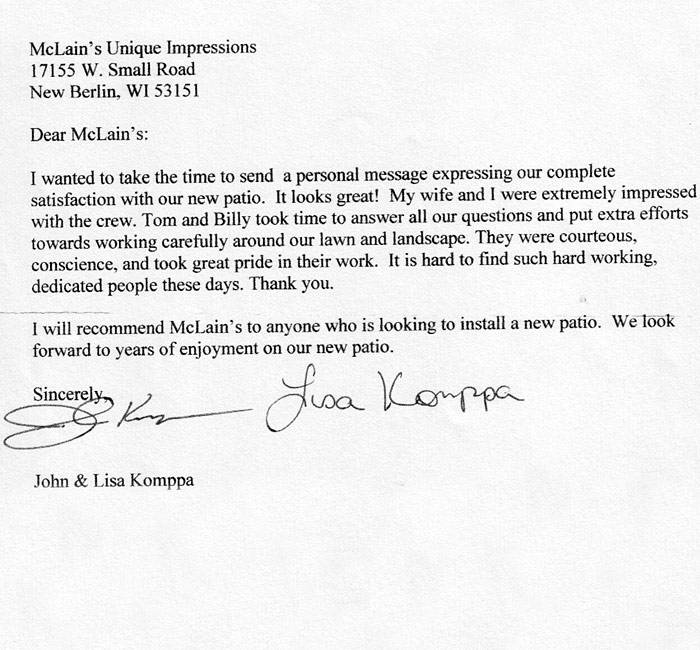 McLain's Unique Impressions
17155 W. Small Road
New Berlin, WI 53151
Dear McLain's:
I wanted to take the time to send a personal message expressing our complete
satisfaction with our new patio. It looks great! My wife and I were extremely impressed
with the crew. Tom and Billy took time to answer all our questions and put extra efforts
towards working carefully around our lawn and landscape. They were courteous,
conscience, and took great pride in their work. It is hard to find such hard working,
dedicated people these days. Thank you.
I will recommend McLain's to anyone who is looking to install a new patio. We look
forward to years of enjoyment on our new patio.
Sincerely,
Lisa Komppa
John & Lisa Komppa